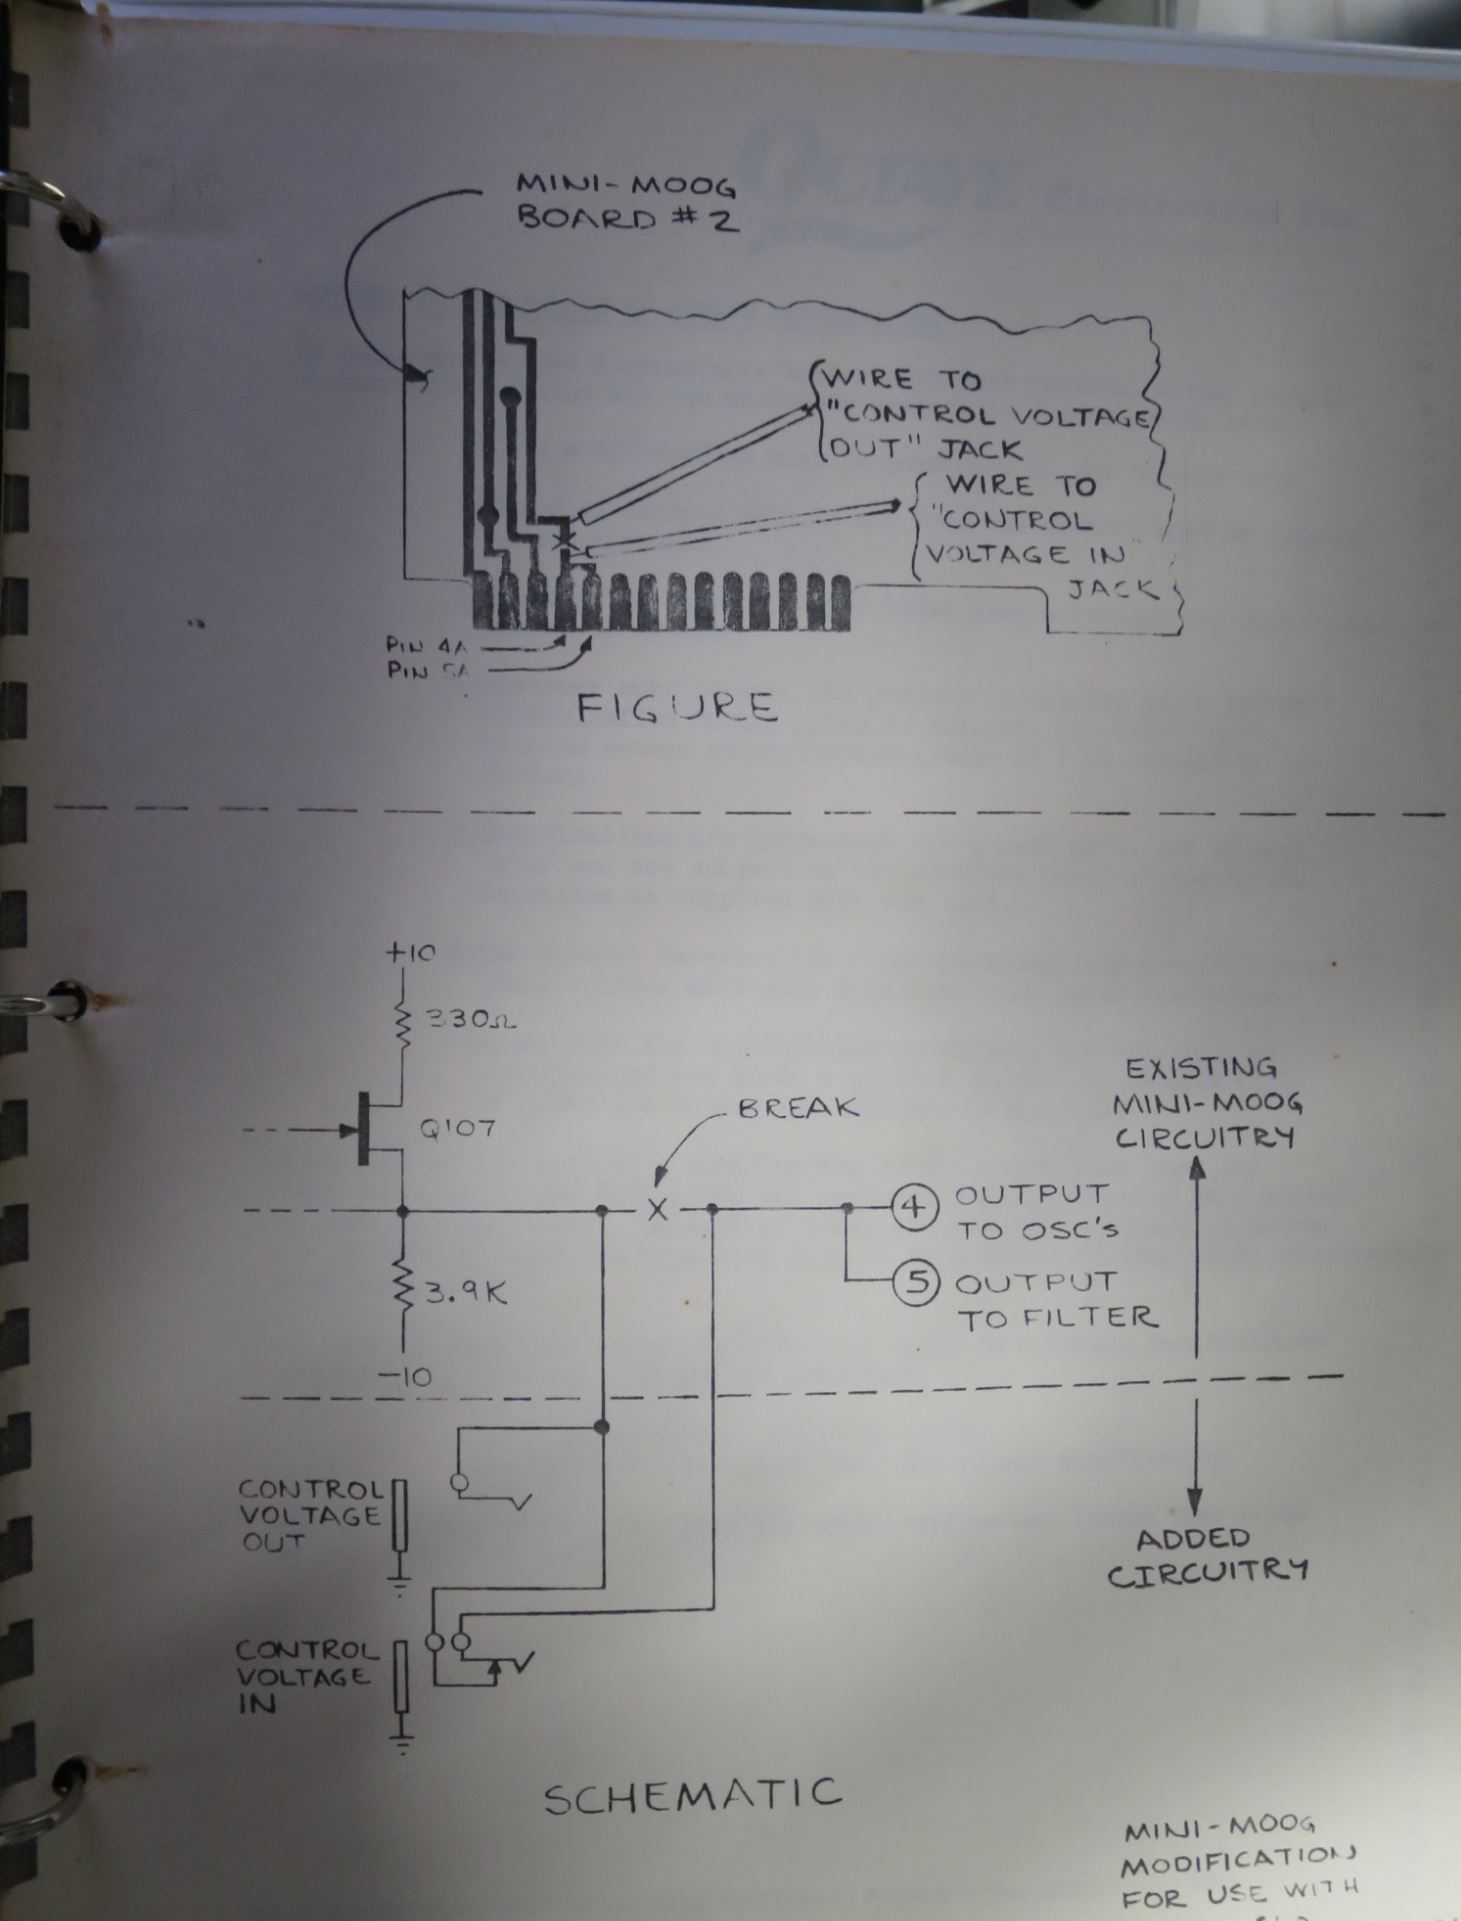 MINI-MOOG
BOARD #2
WIRE TO
"CONTROL VOLTAGE
OUT" JACK
WIRE TO
"CONTROL
VOLTAGE IN"
JACK
PIN 4A
PIN 5A
FIGURE
+10
330Ω
Q107
BREAK
EXISTING
MINI-MOOG
CIRCUITRY
X
4 OUTPUT
TO OSC's
3.9K
5 OUTPUT
TO FILTER
-10
CONTROL
VOLTAGE
OUT
ADDED
CIRCUITRY
CONTROL
VOLTAGE
IN
SCHEMATIC
MINI-MOOG
MODIFICATION
FOR USE WITH